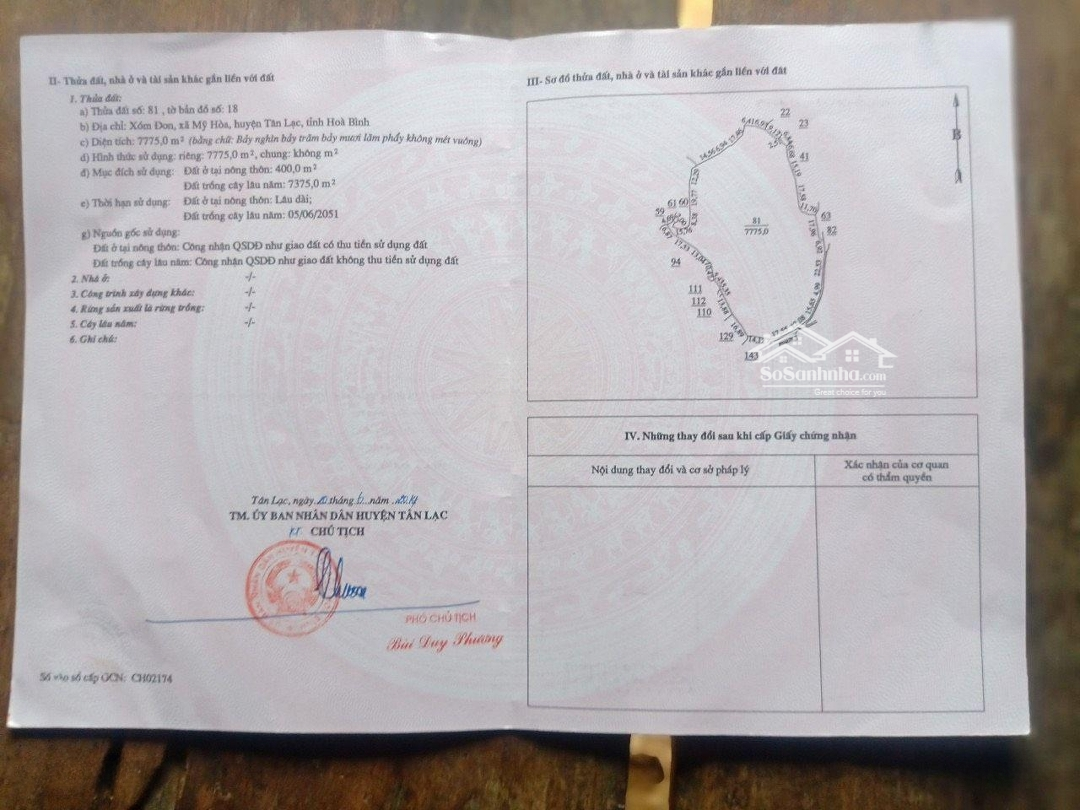 II- Thửa đất, nhà ở và tài sản khác gắn liền với đất
1. Thửa đất:
a) Thửa đất số: 81 , tờ bản đồ số: 18
b) Địa chỉ: Xóm Đon, xã Mỹ Hòa, huyện Tân Lạc, tỉnh Hoà Bình
c) Diện tích: 7775,0 m² (bằng chữ: Bảy nghìn bảy trăm bảy mươi lăm phẩy không mét vuông)
d) Hình thức sử dụng: riêng: 7775,0 m², chung: không m²
đ) Mục đích sử dụng: Đất ở tại nông thôn: 400,0 m²
Đất trồng cây lâu năm: 7375,0 m²
e) Thời hạn sử dụng: Đất ở tại nông thôn: Lâu dài;
Đất trồng cây lâu năm: 05/06/2051
g) Nguồn gốc sử dụng:
Đất ở tại nông thôn: Công nhận QSDĐ như giao đất có thu tiền sử dụng đất
Đất trồng cây lâu năm: Công nhận QSDĐ như giao đất không thu tiền sử dụng đất
2. Nhà ở: -/-
3. Công trình xây dựng khác: -/-
4. Rừng sản xuất là rừng trồng: -/-
5. Cây lâu năm: -/-
6. Ghi chú:
Tân Lạc, ngày tháng năm
TM. ỦY BAN NHÂN DÂN HUYỆN TÂN LẠC
KT CHỦ TỊCH
PHÓ CHỦ TỊCH
Bùi Duy Phương
Số vào sổ cấp GCN: CH02174
III- Sơ đồ thửa đất, nhà ở và tài sản khác gắn liền với đất
B
22
23
41
63
82
61 60
59
94
111
112
110
129
143
81
7775,0
SoSanhnha.com
Great choice for you
IV. Những thay đổi sau khi cấp Giấy chứng nhận
Nội dung thay đổi và cơ sở pháp lý
Xác nhận của cơ quan
có thẩm quyền